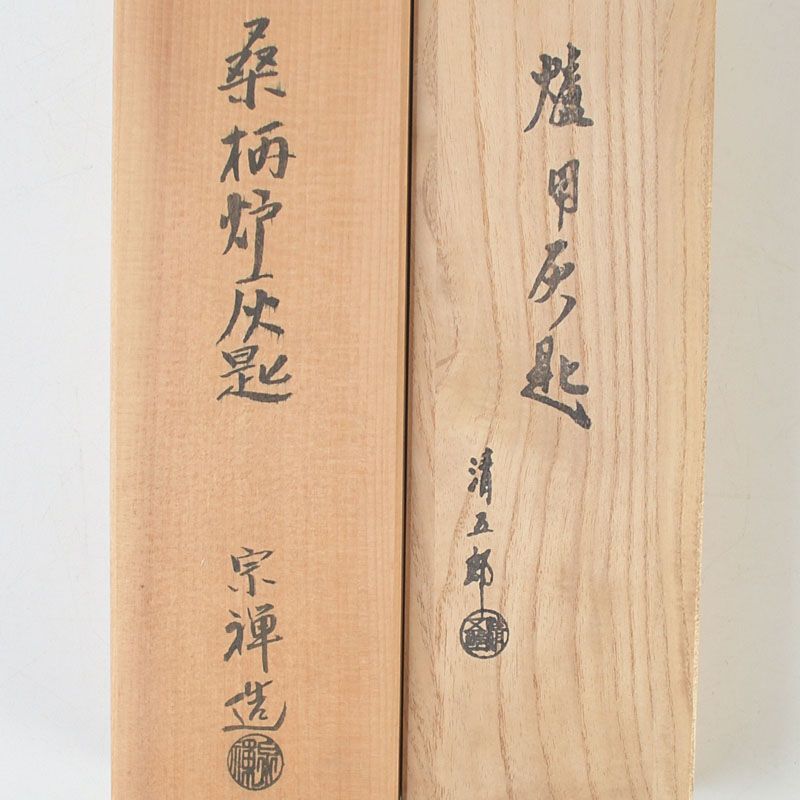 爐用灰匙
清五郎
桑柄炉灰匙
宗禅造
宗禅